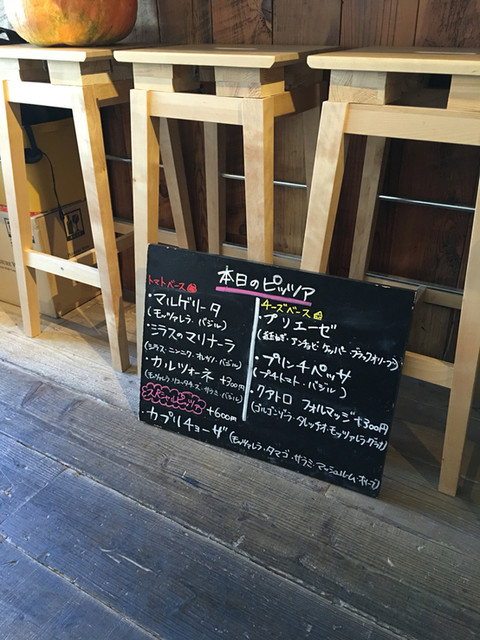 本日のピッツァ
トマトベース
・マルゲリータ
(モッツァレラ・バジル)
・シラスのマリナーラ
(シラス・ニンニク・オレガノ・バジル)
・カルツォーネ +300円
(モッツァレラ・リコッタチーズ・サラミ・バジル)
スペシャルピッツァ +600円
・カプリチョーザ (モッツァレラ・タマゴ・サラミ・マッシュルーム・オリーブ)
チーズベース
・プリエーゼ
(赤玉ねぎ・アンチョビ・ケッパー・ブラックオリーブ)
・プリンチペッサ
(プチトマト・バジル)
・クアトロ フォルマッジ +300円
(ゴルゴンゾーラ・タレッチオ・モッツァレラ・グラナ)